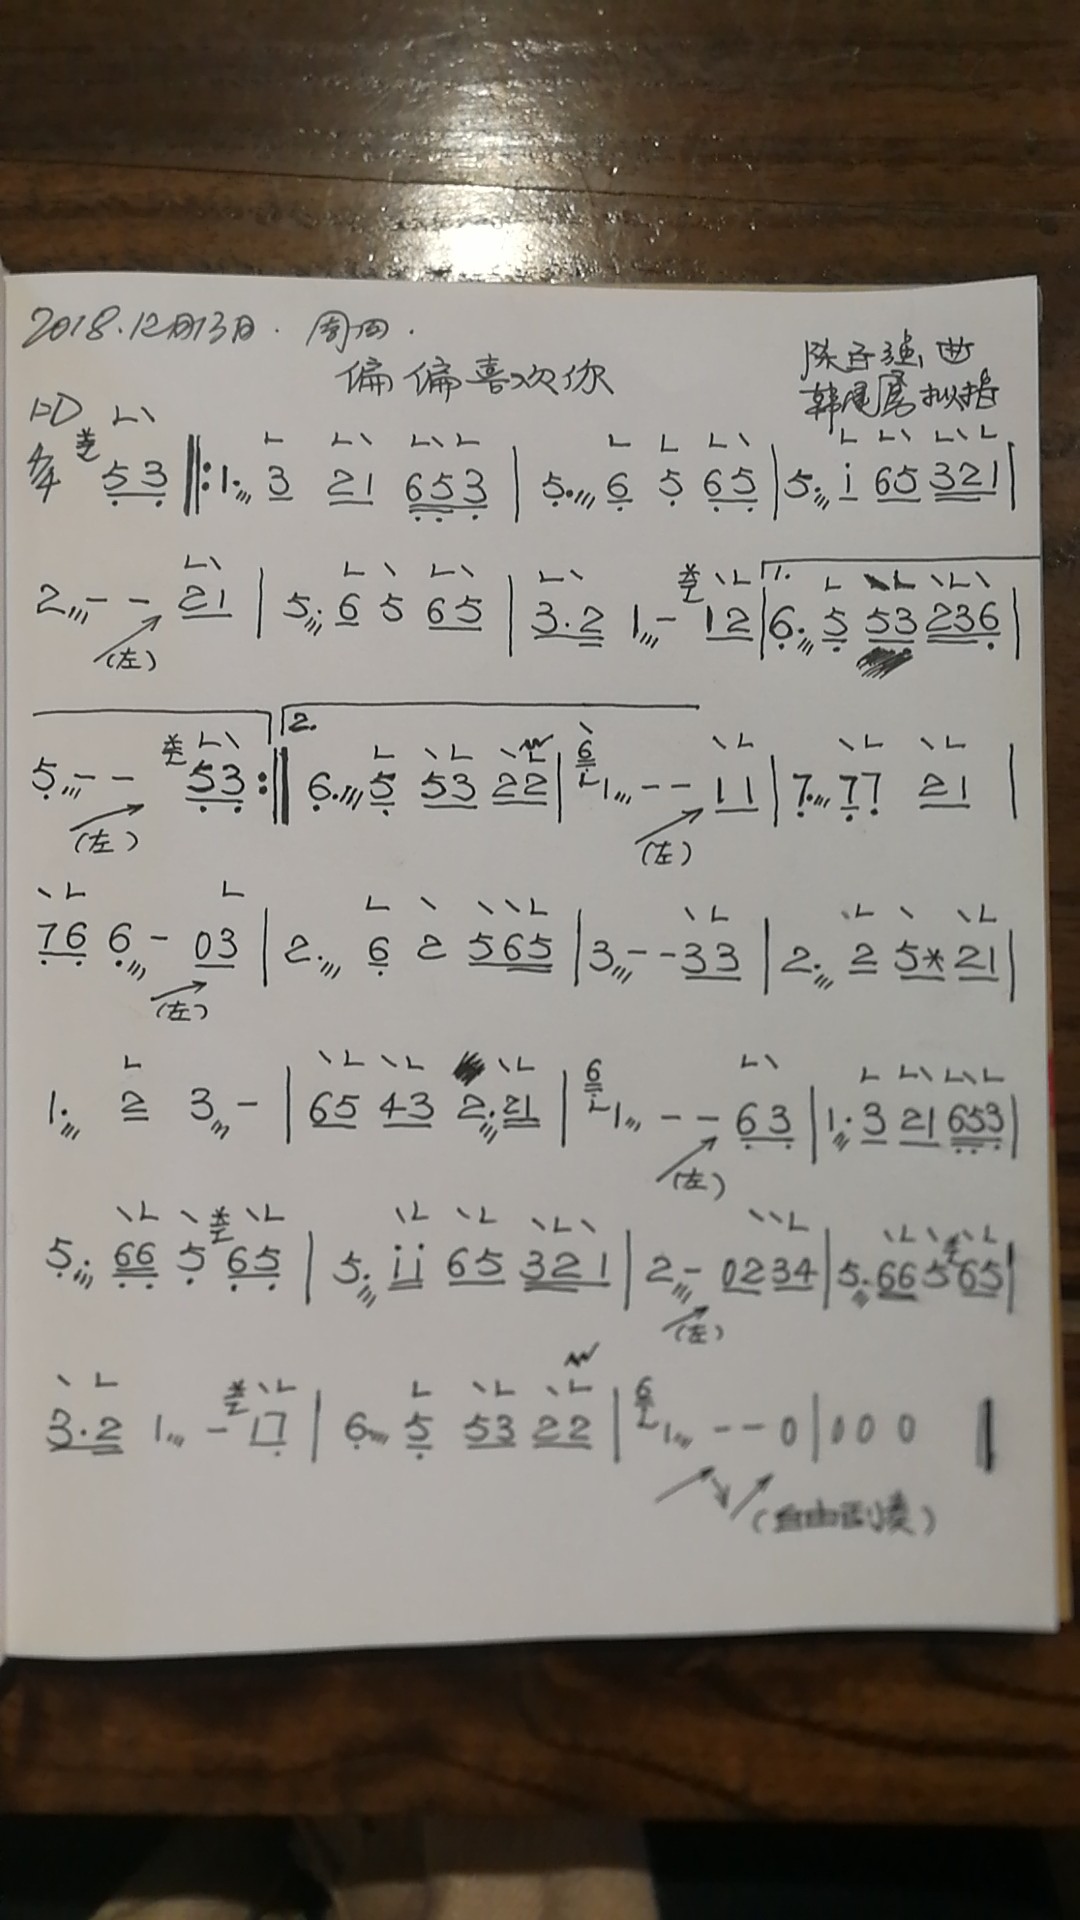 2018.12月13日. 周四.
偏偏喜欢你
曲
拟指
1=D
4/4 53 ‖: 1. 3 21 653 | 5. 6 5 65 | 5. i 65 321 |
2 - - 21 | 5. 6 5 65 | 3.2 1 - 12 | 1. 6. 5 53 236 |
(左)
5 - - 53 :‖ 2. 6. 5 53 22 | 6 1 - - 11 | 7. 77 21 |
(左) (左)
76 6 - 03 | 2. 6 2 565 | 3 - - 33 | 2. 2 5* 21 |
(左)
1. 2 3 - | 65 43 2.21 | 6 1 - - 63 | 1. 3 21 653 |
(左)
5. 66 5 65 | 5. ii 65 321 | 2 - 0234 | 5. 66 5 65 |
(左)
3.2 1 - | 6 5 53 22 | 6 1 - - 0 | 0 0 0